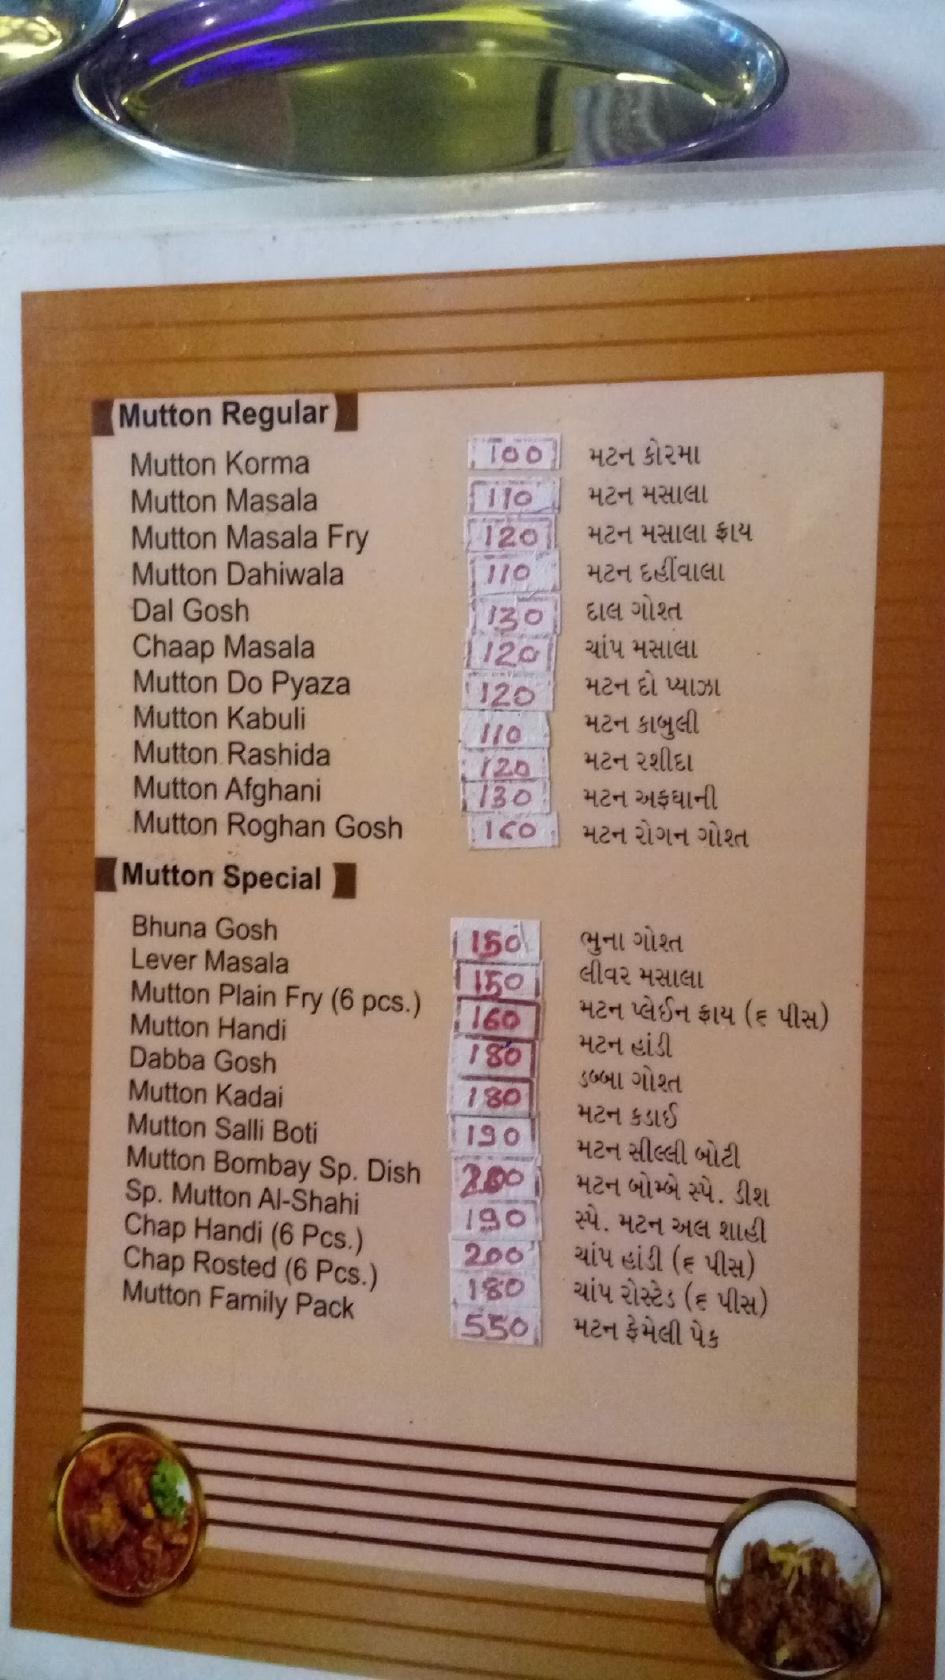 Mutton Regular
Mutton Korma 100 મટન કોરમા
Mutton Masala 110 મટન મસાલા
Mutton Masala Fry 120 મટન મસાલા ફ્રાય
Mutton Dahiwala 110 મટન દહીંવાલા
Dal Gosh 130 દાલ ગોશ્ત
Chaap Masala 120 ચાંપ મસાલા
Mutton Do Pyaza 120 મટન દો પ્યાઝા
Mutton Kabuli 110 મટન કાબુલી
Mutton Rashida 120 મટન રશીદા
Mutton Afghani 130 મટન અફઘાની
Mutton Roghan Gosh 160 મટન રોગન ગોશ્ત
Mutton Special
Bhuna Gosh 150 ભુના ગોશ્ત
Lever Masala 150 લીવર મસાલા
Mutton Plain Fry (6 pcs.) 160 મટન પ્લેઈન ફ્રાય (૬ પીસ)
Mutton Handi 180 મટન હાંડી
Dabba Gosh 180 ડબ્બા ગોશ્ત
Mutton Kadai 190 મટન કડાઈ
Mutton Salli Boti 200 મટન સીલ્લી બોટી
Mutton Bombay Sp. Dish 190 મટન બોમ્બે સ્પે. ડીશ
Sp. Mutton Al-Shahi 200 સ્પે. મટન અલ શાહી
Chap Handi (6 Pcs.) 180 ચાંપ હાંડી (૬ પીસ)
Chap Rosted (6 Pcs.) 550 ચાંપ રોસ્ટેડ (૬ પીસ)
Mutton Family Pack મટન ફેમેલી પેક